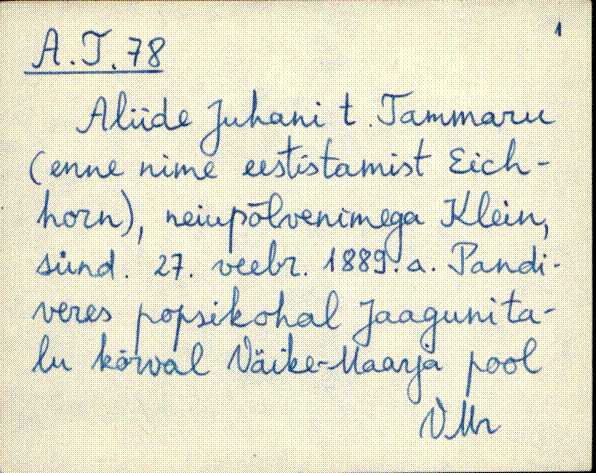 1
A.T. 78
Aliide Juhani t. Tammaru
(enne nime eestistamist Eich-
horn), neiupõlvenimega Klein,
sünd. 27. veebr. 1889. a. Pandi-
veres popsikohal Jaagunita-
lu kõrval Väike-Maarja pool
VMr